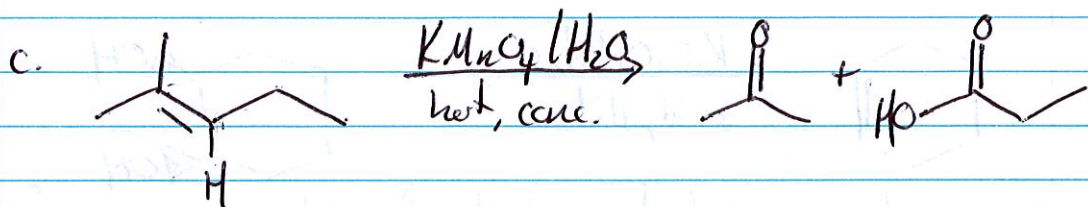 c.
KMnO4/H2O
hot, conc.
O
+
O
HO
H